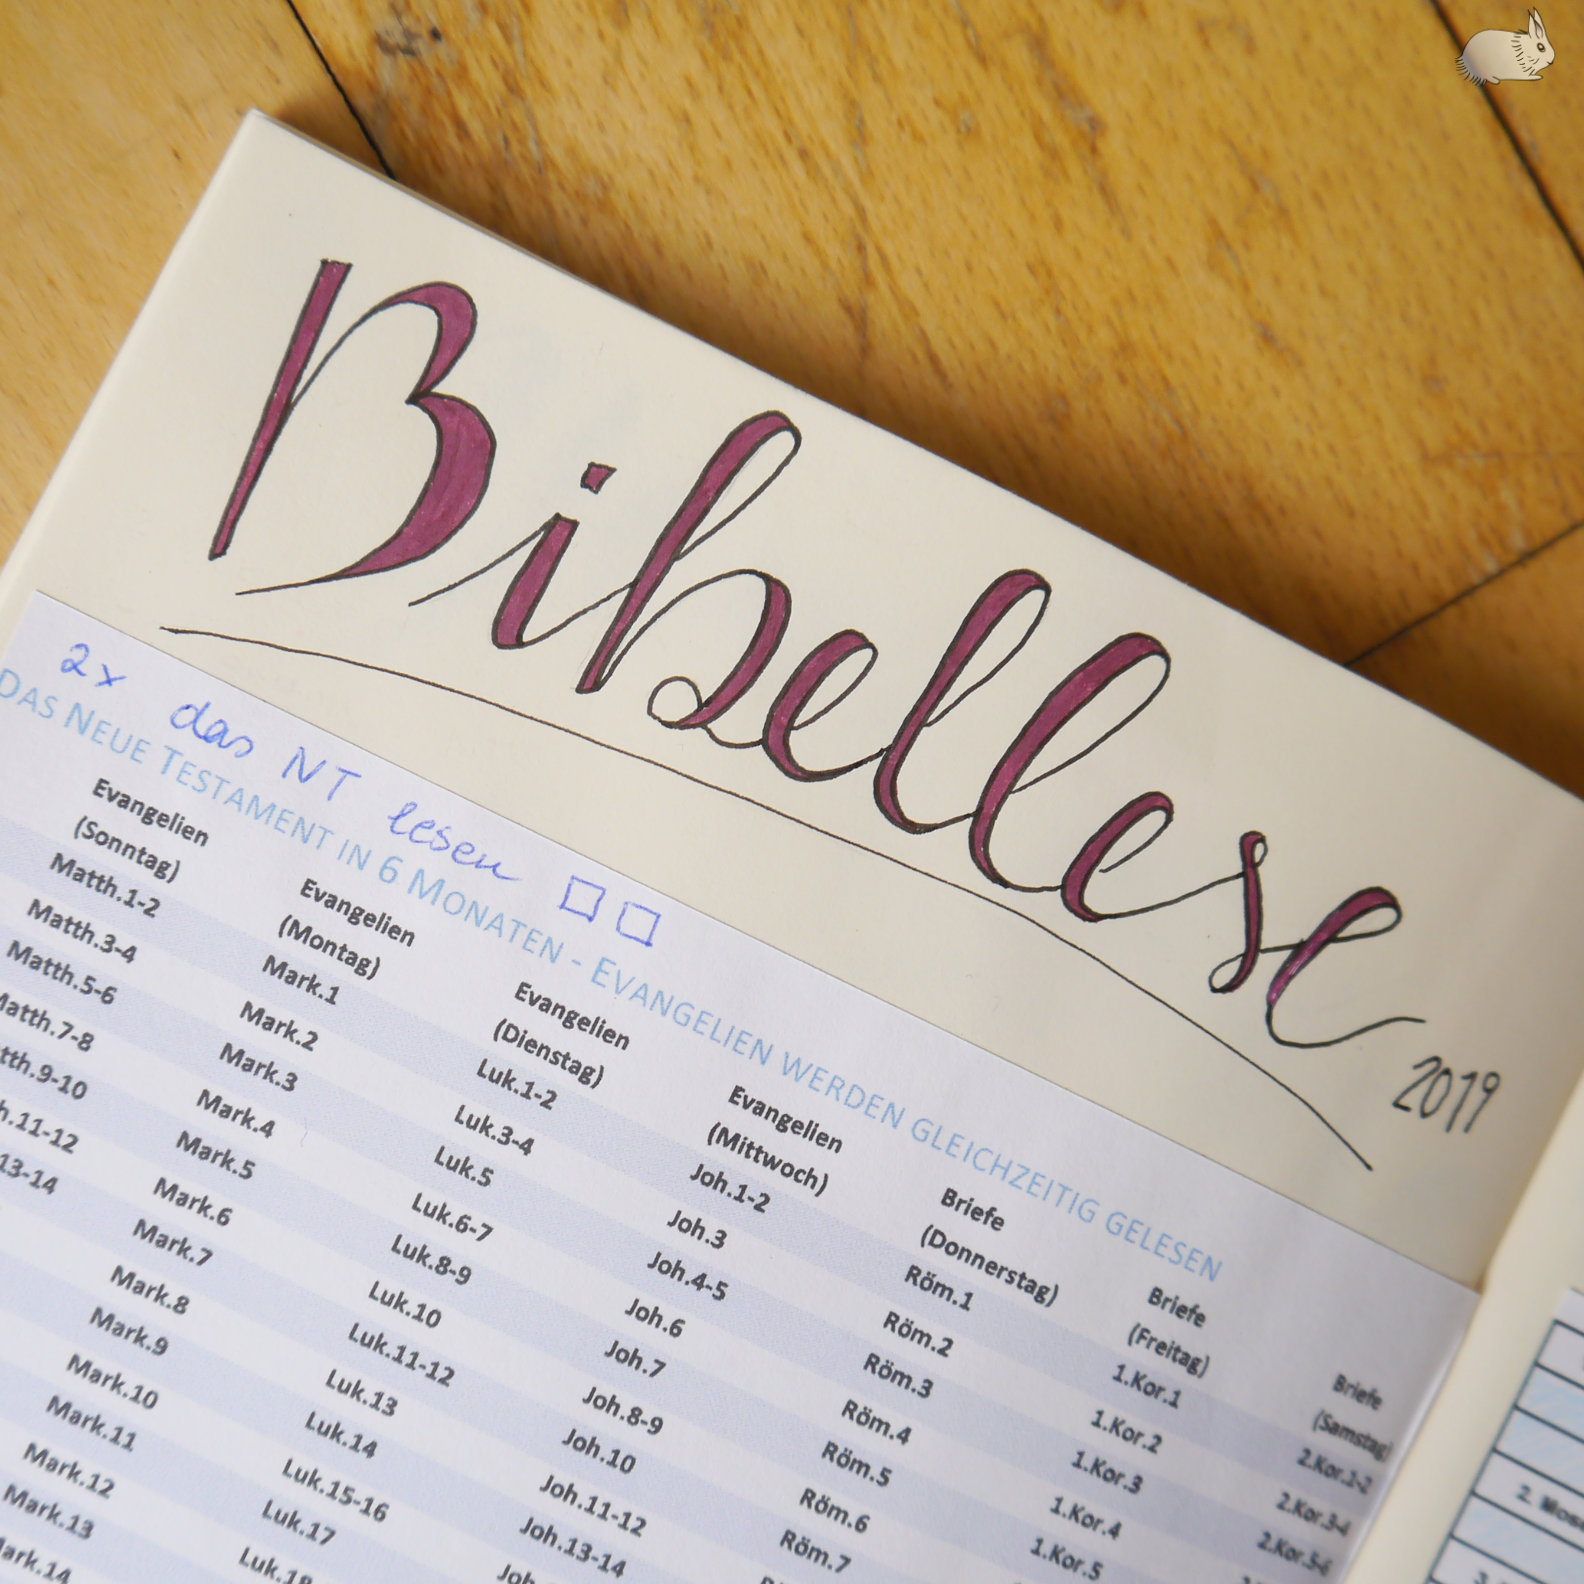 Bibellese
2019
2x das NT lesen
DAS NEUE TESTAMENT IN 6 MONATEN - EVANGELIEN WERDEN GLEICHZEITIG GELESEN
Evangelien Evangelien Evangelien Evangelien Briefe Briefe Briefe
(Sonntag) (Montag) (Dienstag) (Mittwoch) (Donnerstag) (Freitag) (Samstag)
Matth.1-2 Mark.1 Luk.1-2 Joh.1-2 Röm.1 1.Kor.1 2.Kor.1-2
Matth.3-4 Mark.2 Luk.3-4 Joh.3 Röm.2 1.Kor.2 2.Kor.3-4
Matth.5-6 Mark.3 Luk.5 Joh.4-5 Röm.3 1.Kor.3 2.Kor.5-6
Matth.7-8 Mark.4 Luk.6-7 Joh.6 Röm.4 1.Kor.4
tth.9-10 Mark.5 Luk.8-9 Joh.7 Röm.5 1.Kor.5
h.11-12 Mark.6 Luk.10 Joh.8-9 Röm.6
13-14 Mark.7 Luk.11-12 Joh.10 Röm.7
Mark.8 Luk.13 Joh.11-12
Mark.9 Luk.14 Joh.13-14
Mark.10 Luk.15-16
Mark.11 Luk.17
Mark.12 Luk.18
Mark.13
ark.14
2. Mose